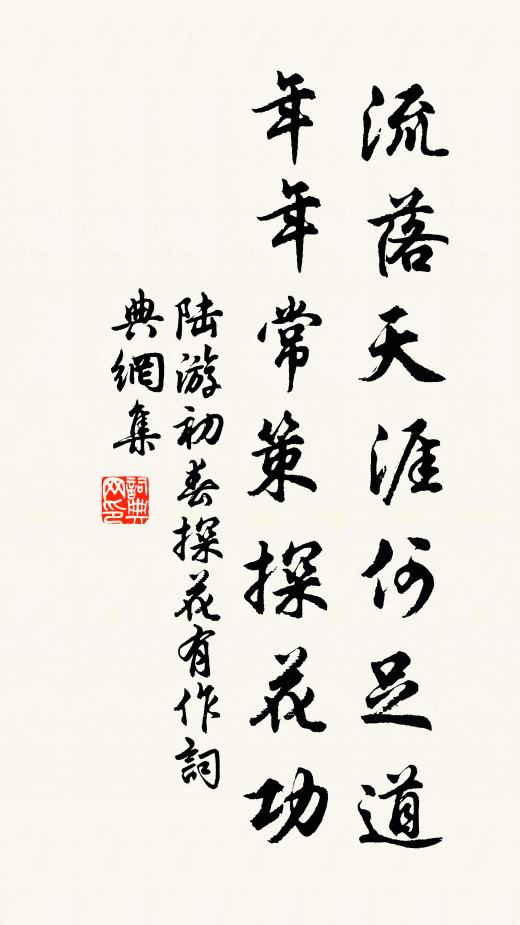 流落天涯何足道
年年常策探花功
陸游初春探花有作詞
典網集
詞典網印